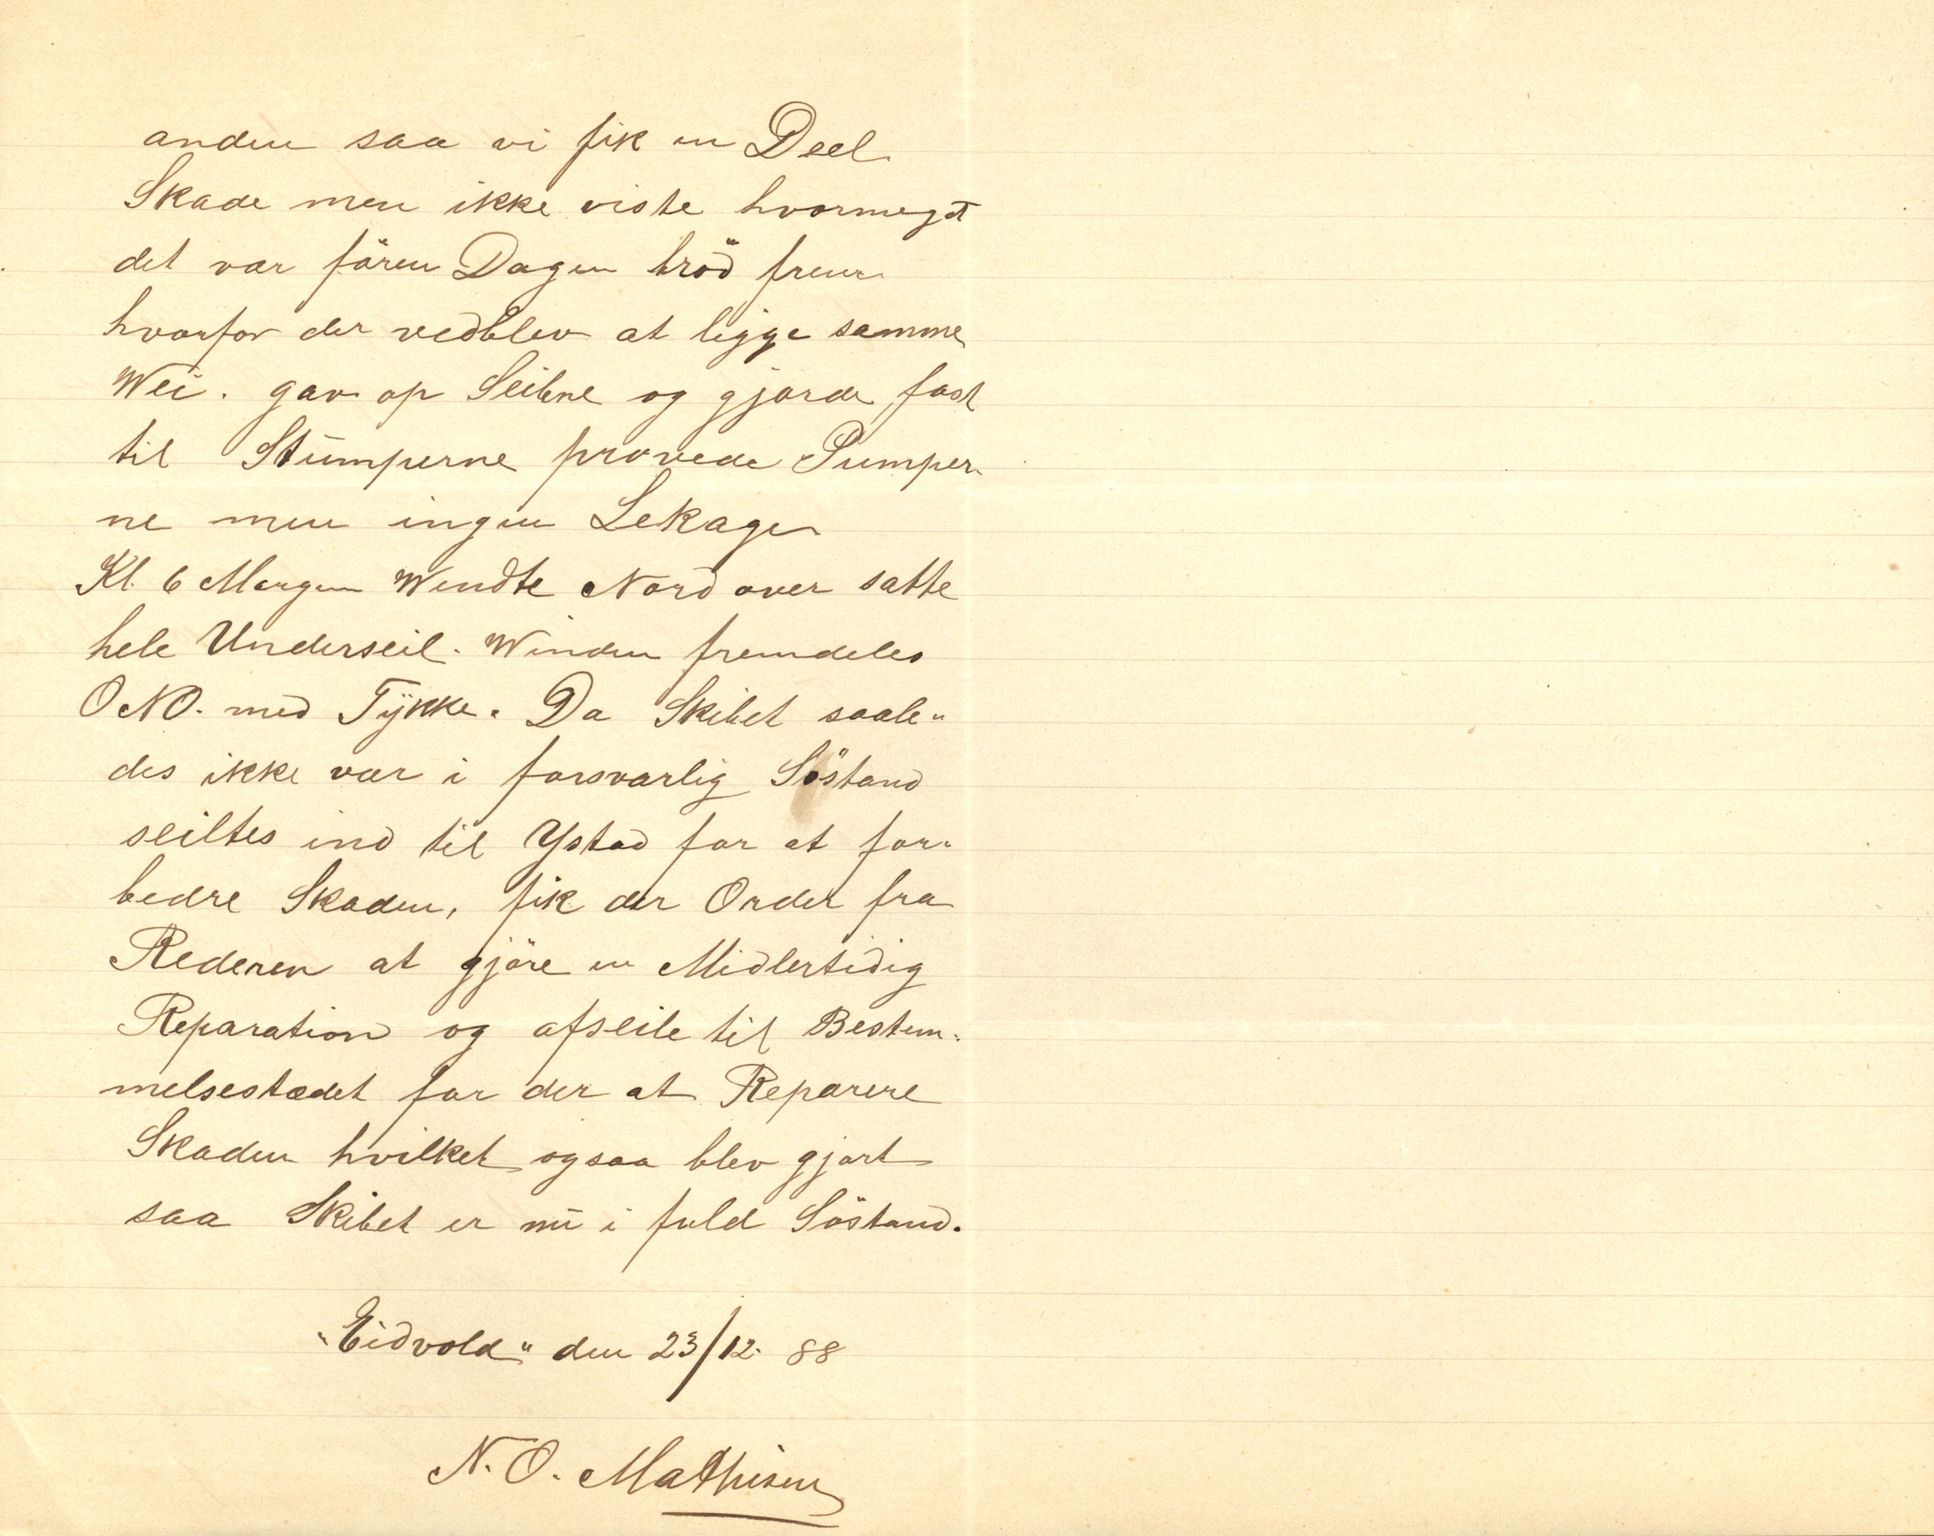 anden saa vi fik en Deel
Skade men ikke viste hvormegt
det var fören Dagen bröd frem
hvorfor der vedblev at ligge samme
Wei. gav op Seilene og gjorde fast
til Stumperne provede Pumper-
ne men ingen Lekage
Kl. 6 Morgen Wendte Nord over satte
hele Underseil. Winden fremdeles
ONO. med Tÿkke. Da Skibet saale"
des ikke var i forsvarlig Söstand
seiltes ind til Ystad for at for-
bedre Skaden, fik der Order fra
Rederen at gjöre en Midlertidig
Reparation og afseile til Bestem-
melsestædet for der at Reparere
Skaden hvilket ogsaa blev gjort
saa Skibet er nu i fuld Söstand.
"Eidvold" den 23/12. 88
N. O. Mathisen